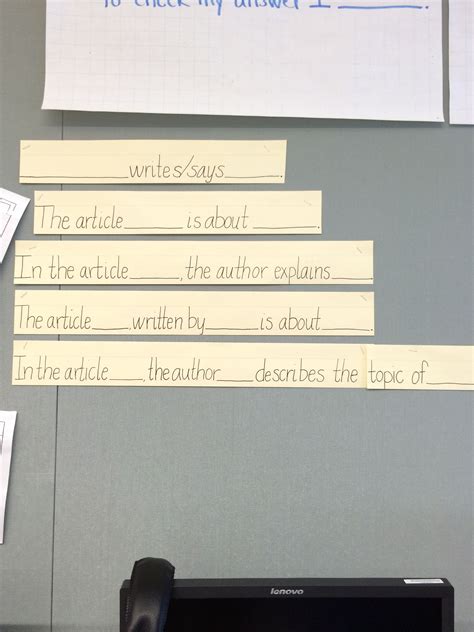 to check my answer I ________.
________writes/says________.
The article______is about ______.
In the article_____, the author explains_____
The article____,written by____is about____.
In the article____, the author____describes the topic of____
lenovo